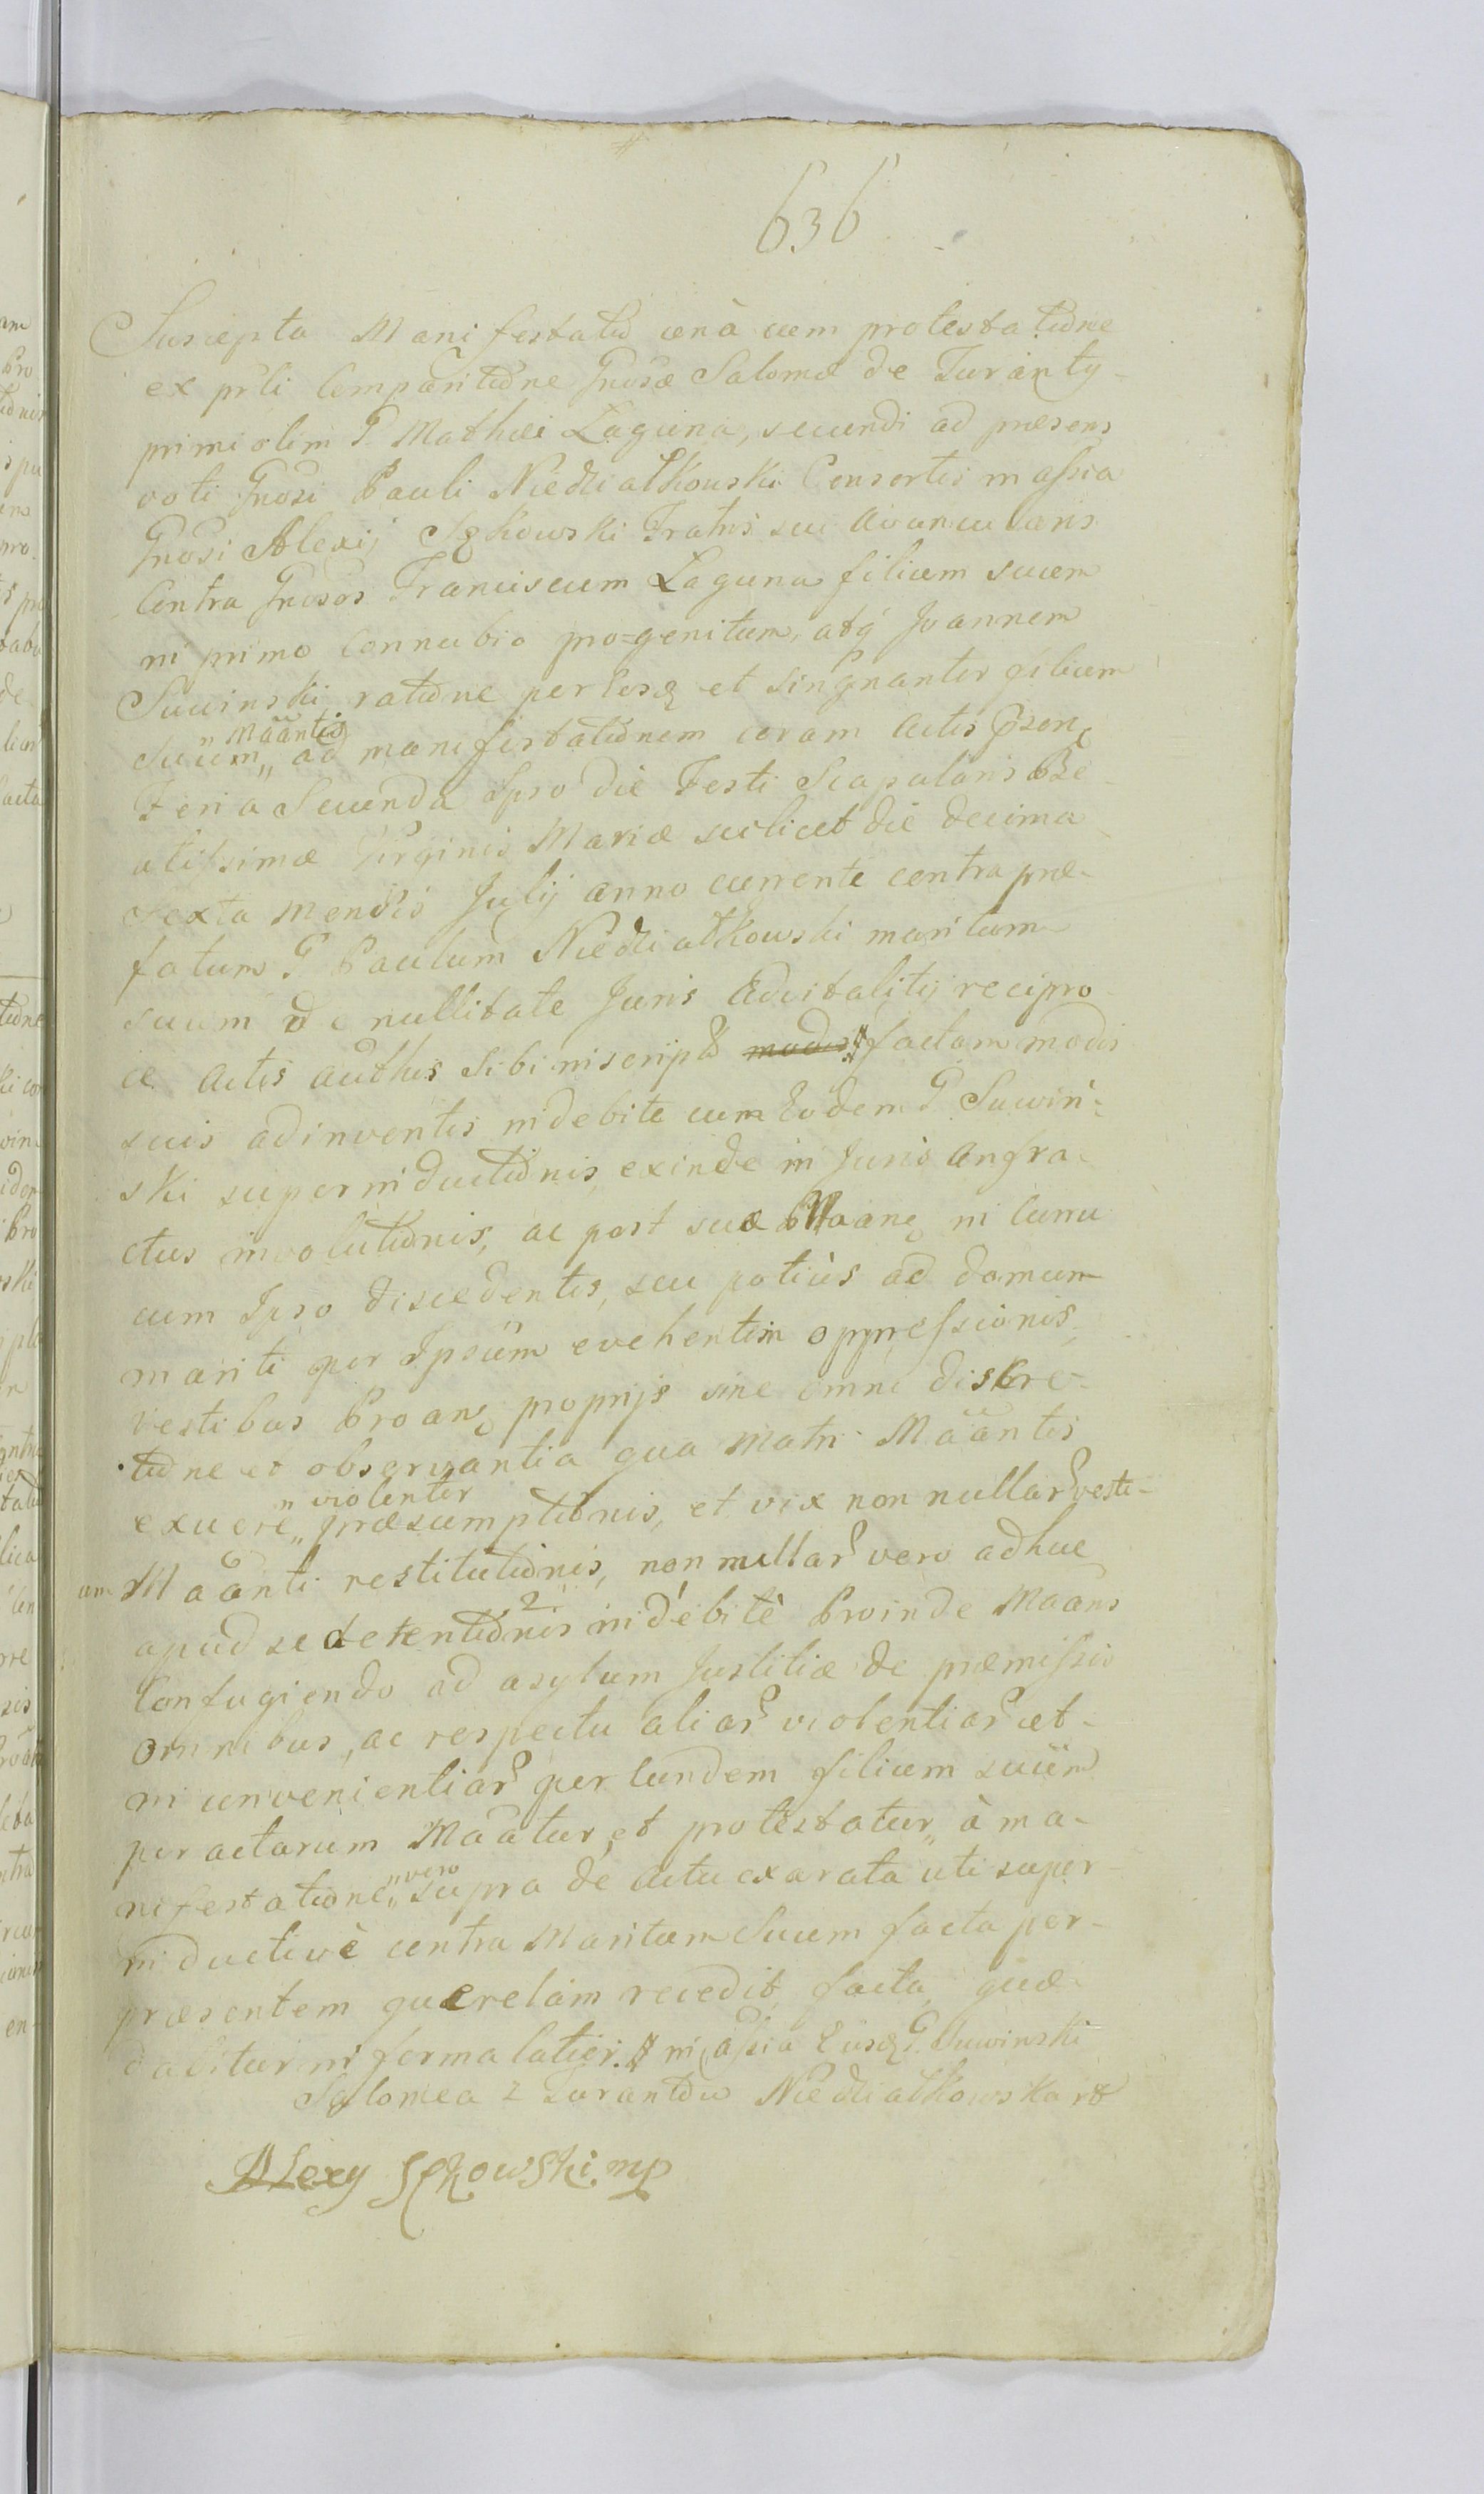 636
Suscepta Manifestatio unà cum protestatione
ex prsti Comparitione Gnosæ Salomæ de Turanty
primi olim G. Mathæi Laguna, secundi ad præsens
voti Gnosi Pauli Niedziałkowski Consortis in assia
Gnosi Alexij Sękowski Fratris sui avuncularis
Contra Gnosos Franciscum Laguna filium suum
in primo Connubio pro=genitum, atq Joannem
Suwinski, ratione per ipsos et singnanter filium
suum „ Mäantis „ ad manifestationem coram Actis
Feria Secunda Ipso die Festi Scapularis Be-
atissimæ Virginis Mariæ scilicet die decima
sexta Mensis Julij anno currente contra præ-
fatum G. Paulum Niedziałkowski maritum
suum de nullitate Juris Advitalitij recipro-
cæ Actis authis sibi inscripti modis factam modis
suis adinventis indebite cum Eodem G. Suwiń-
ski superinductionis, exinde in Juris Anfra-
ctus involutionis, ac post suæ in Curru
cum Ipso discedentis, seu potiùs ad domum
mariti per Ipsum evehentis oppressionis,
vestibus proprijs sine omni discre-
tione et observantia qua Matri Mäantis
exuere „ violenter „ præsumptionis, et vix non nullar vesti-
um Mäanti restitutionis, non nullar vero adhuc
apud se detentionis indebitè Proinde Mäans
Confugiendo ad asylum Justitiæ de præmissis
omnibus, ac respectu aliar violentiar et
inconvenientiar per Eundem filium suum
peractarum Mäatur et protestatur, à ma-
nifestatione „ vero „ supra de Actu exarata uti super-
inductivè contra Maritum Suum facta per
præsentem quærelam recedit, facta, quæ
dabitur in forma latiori. in assia Ejusd G. Suwinski
Salomea z Turantow Niedziałkowska
Alexy Sękowski mp